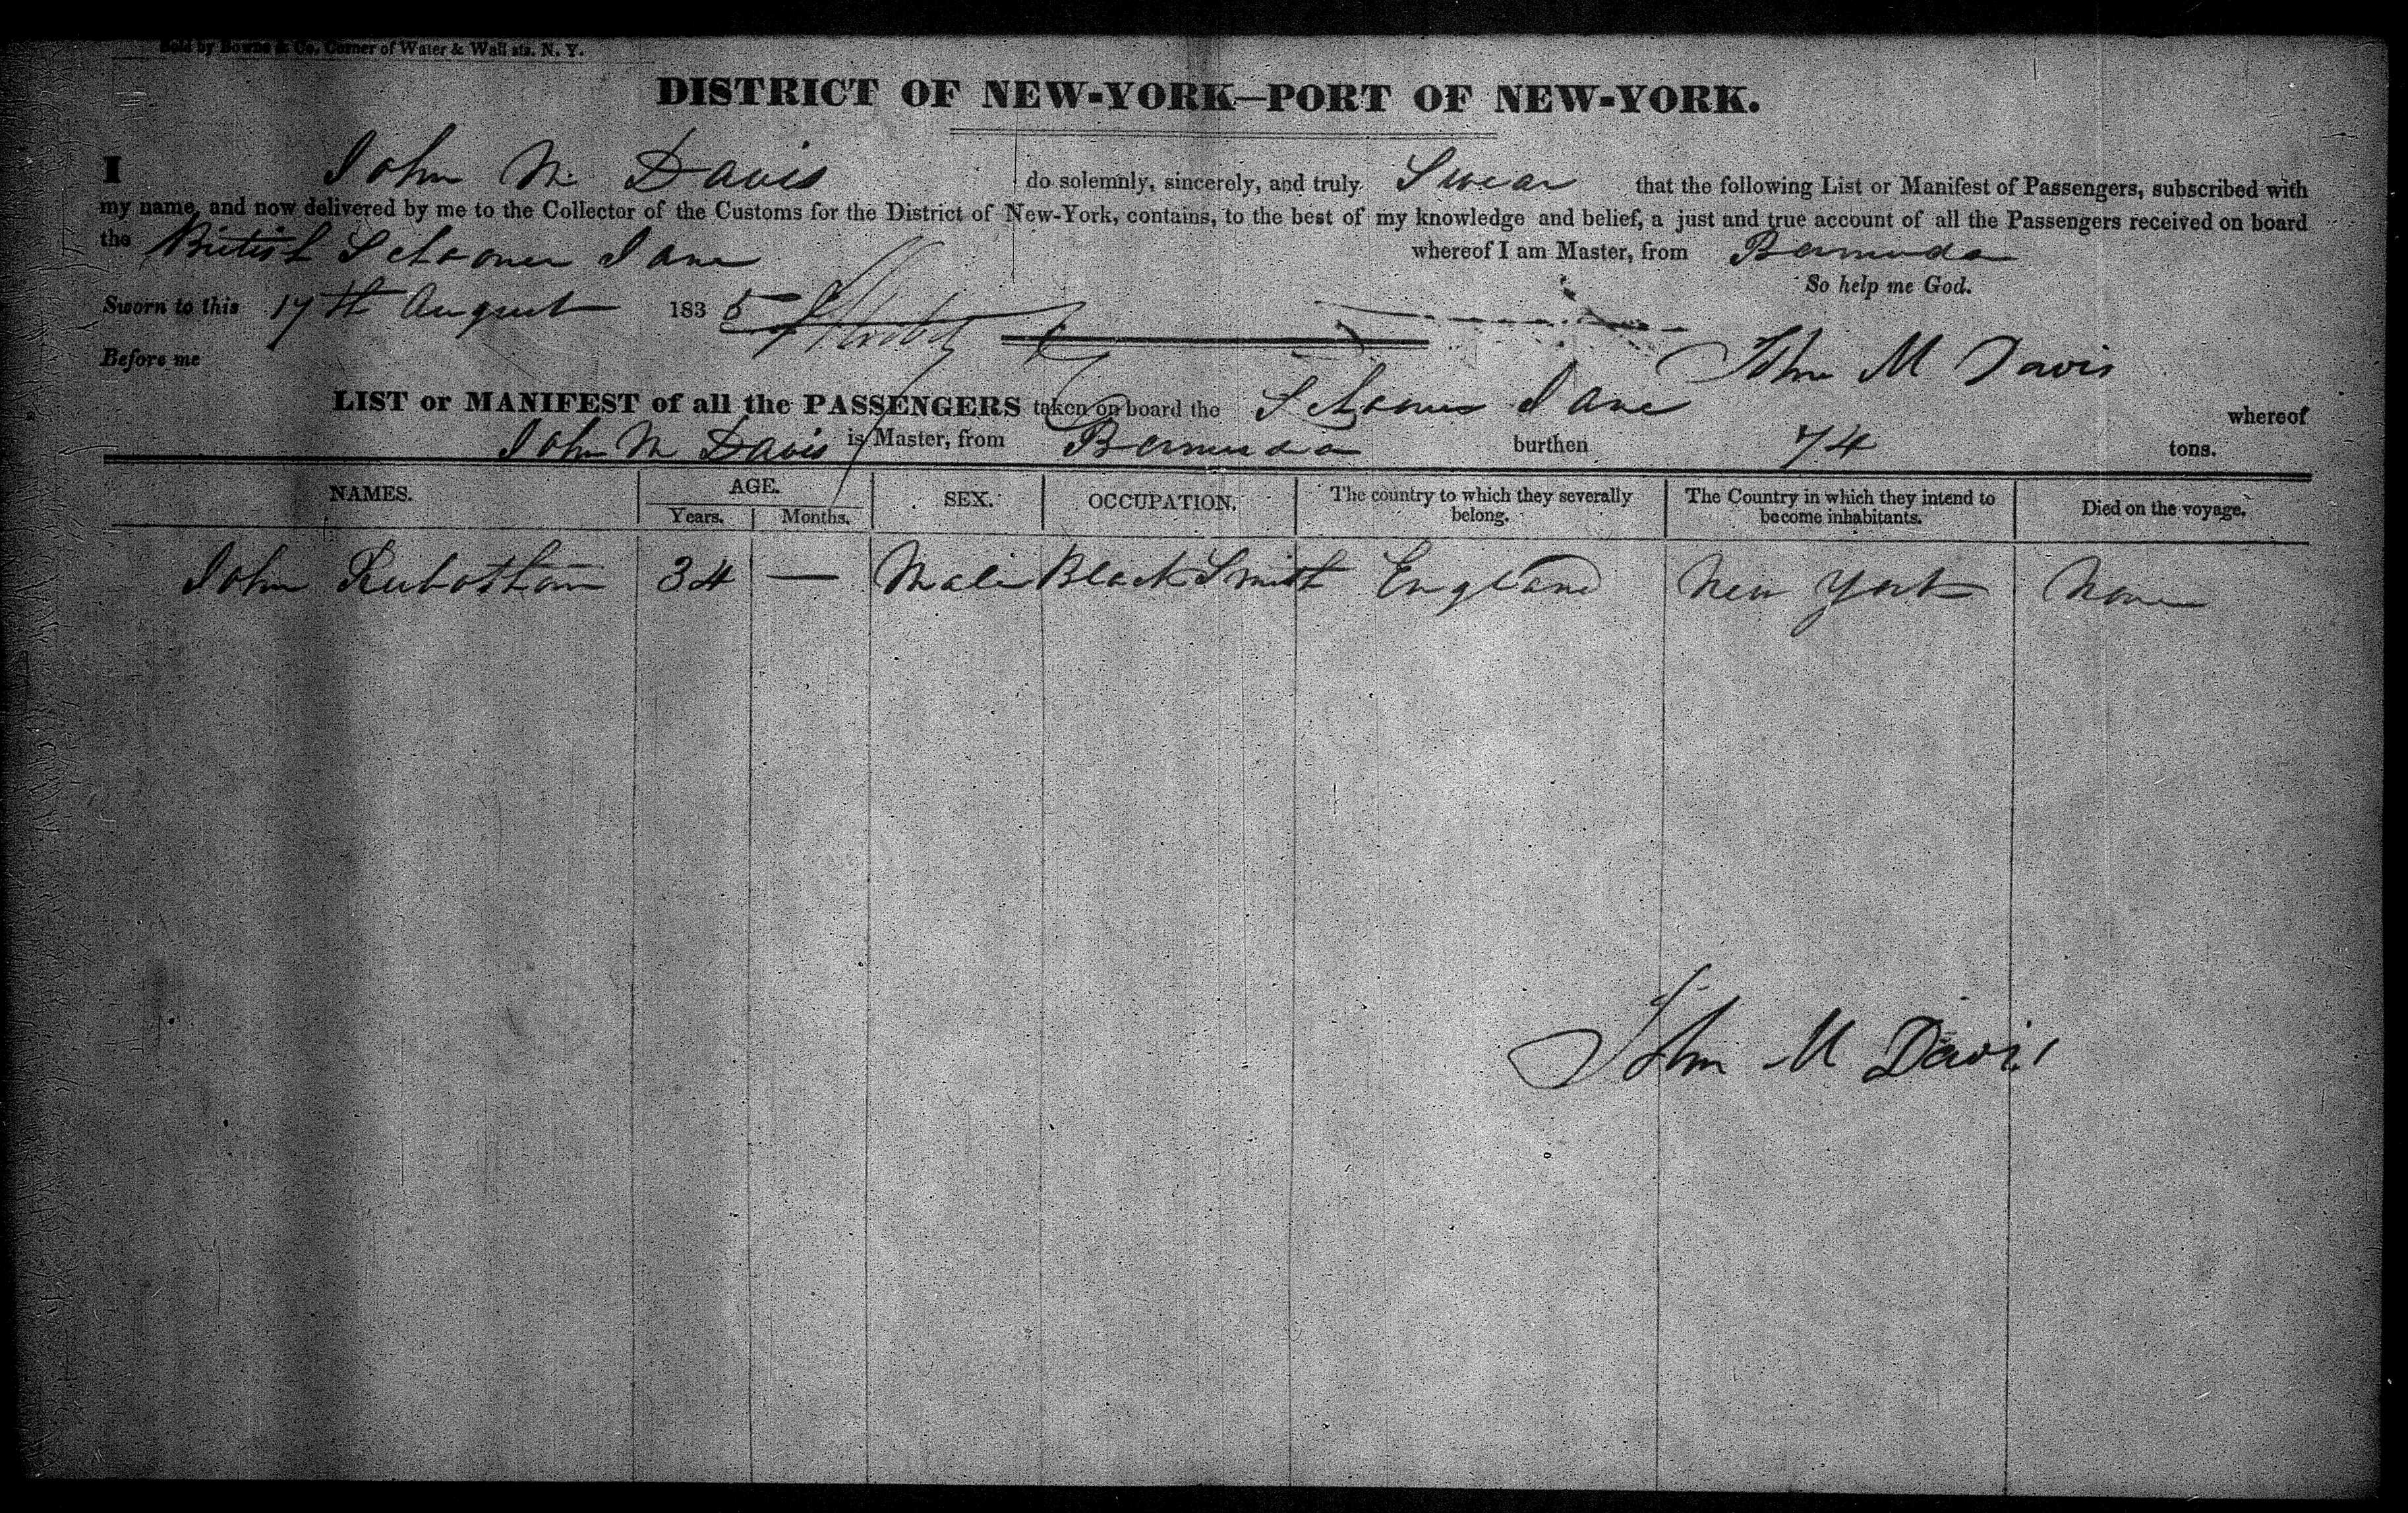 Sold by Bowne & Co. Corner of Water & Wall sts. N. Y.
DISTRICT OF NEW-YORK—PORT OF NEW-YORK.
I John M. Davis do solemnly, sincerely, and truly Swear that the following List or Manifest of Passengers, subscribed with
my name, and now delivered by me to the Collector of the Customs for the District of New-York, contains, to the best of my knowledge and belief, a just and true account of all the Passengers received on board
the British Schooner Jane whereof I am Master, from Bermuda
So help me God.
Sworn to this 17th August 1835
Before me
John M Davis
LIST or MANIFEST of all the PASSENGERS taken on board the Schooner Jane whereof
John M Davis is Master, from Bermuda burthen 74 tons.
NAMES. AGE. SEX. OCCUPATION. The country to which they severally belong. The Country in which they intend to become inhabitants. Died on the voyage.
Years. Months.
John Rubotham 34 — Male Black Smith England New York None
John M Davis